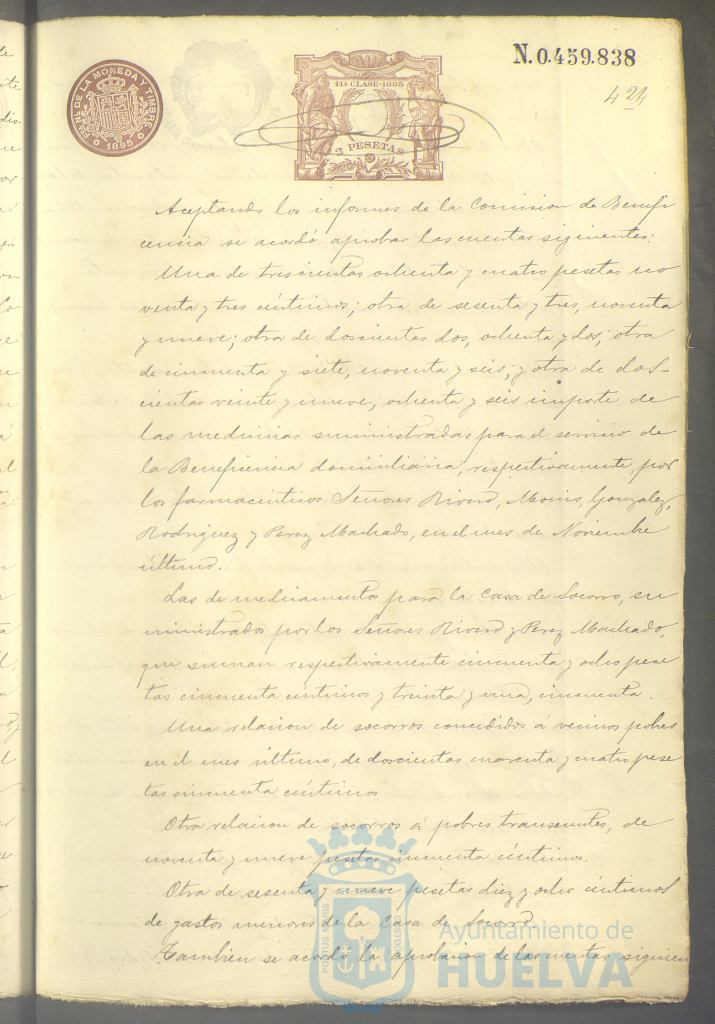 N. 0.459.838
FCA. NL. DE LA MONEDA Y TIMBRE
1895
11ª CLASE-1895
2 PESETAS
424
Aceptando los informes de la Comision de Benefi
cencia se acordó aprobar las cuentas siguientes:
Una de trescientas ochenta y cuatro pesetas no
venta y tres céntimos; otra de sesenta y tres, noventa
y nueve; otra de doscientas dos, ochenta y dos; otra
de cincuenta y siete, noventa y seis; y otra de dos-
cientas veinte y nueve, ochenta y seis importe de
las medicinas suministradas para el servicio de
la Beneficencia domiciliaria, respectivamente, por
los farmacéuticos Señores Rivero, Monis, Gonzalez,
Rodriguez y Perez Machado, en el mes de Noviembre
último.
Las de medicamentos para la Casa de Socorro, su
ministrados por los Señores Rivero y Perez Machado,
que suman respectivamente cincuenta y ocho pese
tas cincuenta céntimos y treinta y una, cincuenta.
Una relacion de socorros concedidos á vecinos pobres
en el mes último, de doscientas cuarenta y cuatro pese
tas cincuenta céntimos
Otra relacion de socorros á pobres transeuntes, de
noventa y nueve pesetas cincuenta céntimos.
Otra de sesenta y nueve pesetas diez y ocho céntimos
de gastos menores de la Casa de Socorro.
Tambien se acordó la aprobacion de las cuentas siguien
PORTUS MARIS
CUSTODIA
Ayuntamiento de
HUELVA